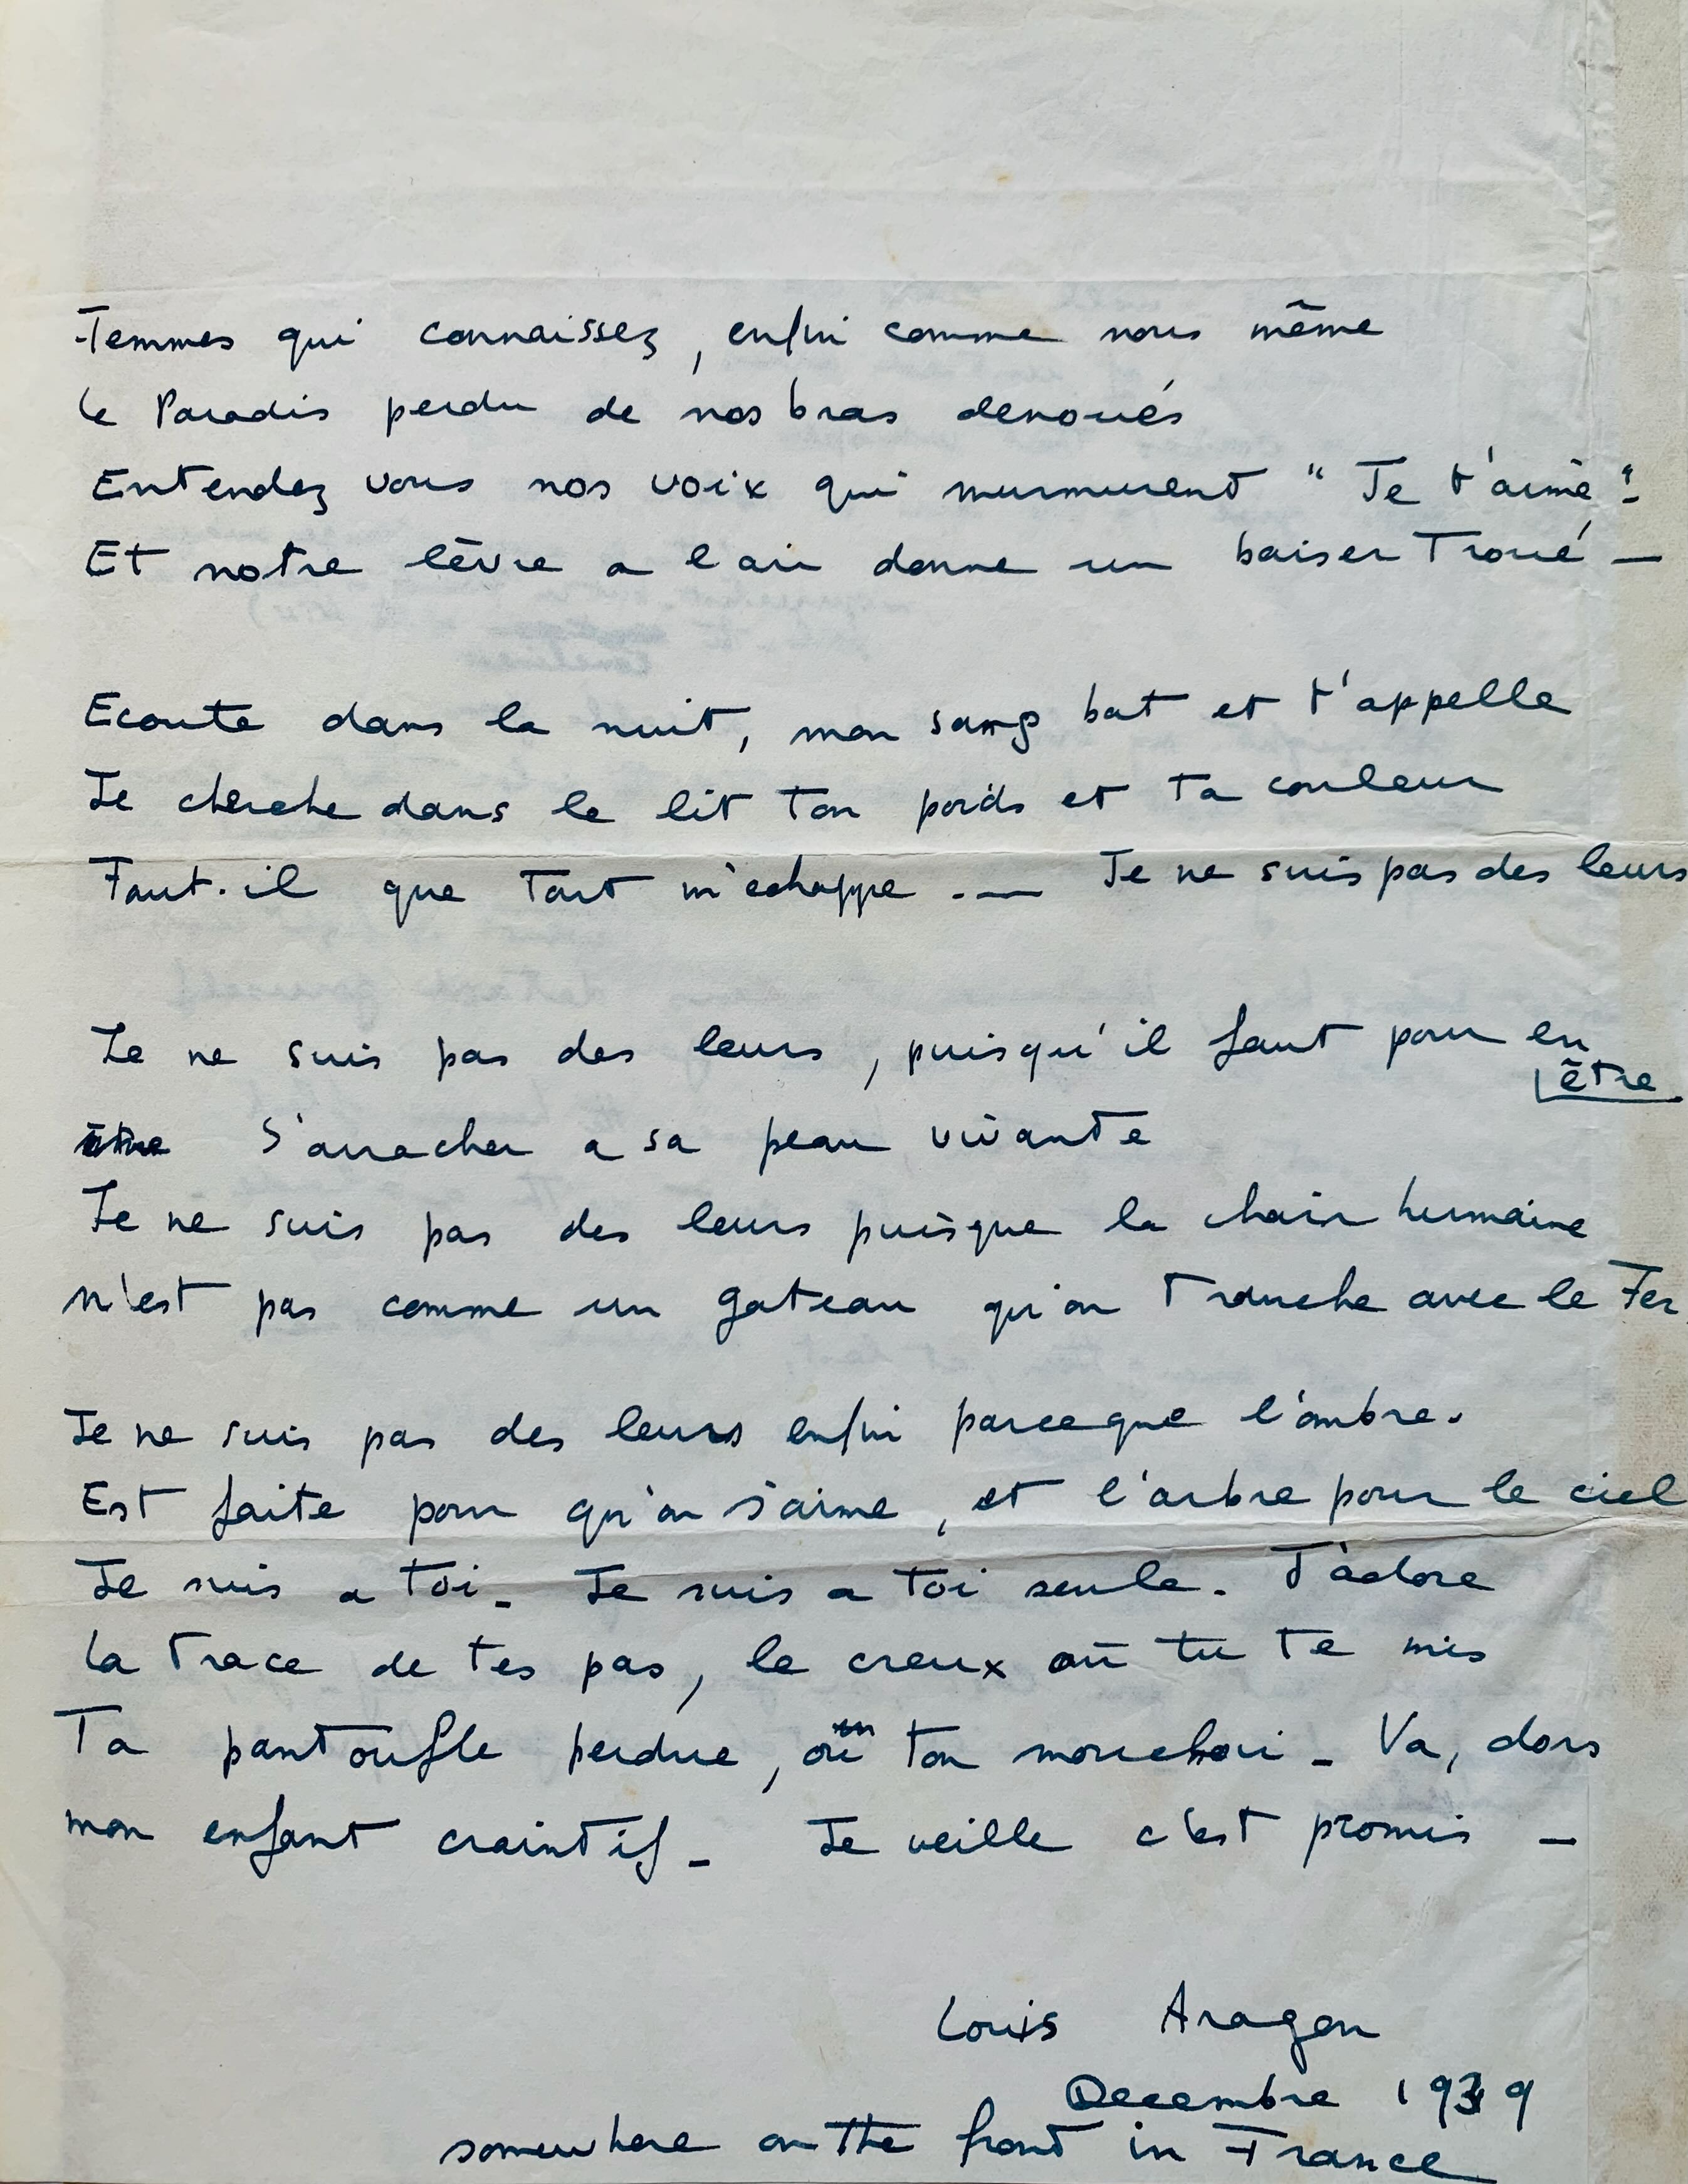 Femmes qui connaissez, enfin comme nous même
le Paradis perdu de nos bras denoués
Entendez vous nos voix qui murmurent "Je t'aime"-
Et notre lèvre a l'air donne un baiser Troué —
Ecoute dans la nuit, mon sang bat et t'appelle
Je cherche dans le lit ton poids et ta couleur
Faut-il que Tout m'echappe .— Je ne suis pas des leurs
Je ne suis pas des leurs, puisqu'il faut pour en
être
S'arracher a sa peau vivante
Je ne suis pas des leurs puisque la chair humaine
n'est pas comme un gateau qu'on Tranche avec le Fer
Je ne suis pas des leurs enfin parceque l'ombre.
Est faite pour qu'on s'aime, et l'arbre pour le ciel
Je suis a toi- Je suis a toi seule. J'adore
la Trace de tes pas, le creux où tu te mis
Ta pantoufle perdue, ou ton mouchoir - Va, dors
mon enfant craintif - Je veille c'est promis —
Louis Aragon
Decembre 1939
somewhere on the front in France